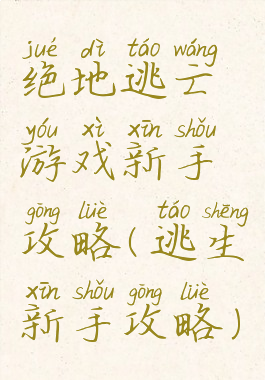 jué dì táo wáng
绝地逃亡
yóu xì xīn shǒu
游戏新手
gōng lüè táo shēng
攻略(逃生
xīn shǒu gōng lüè
新手攻略)